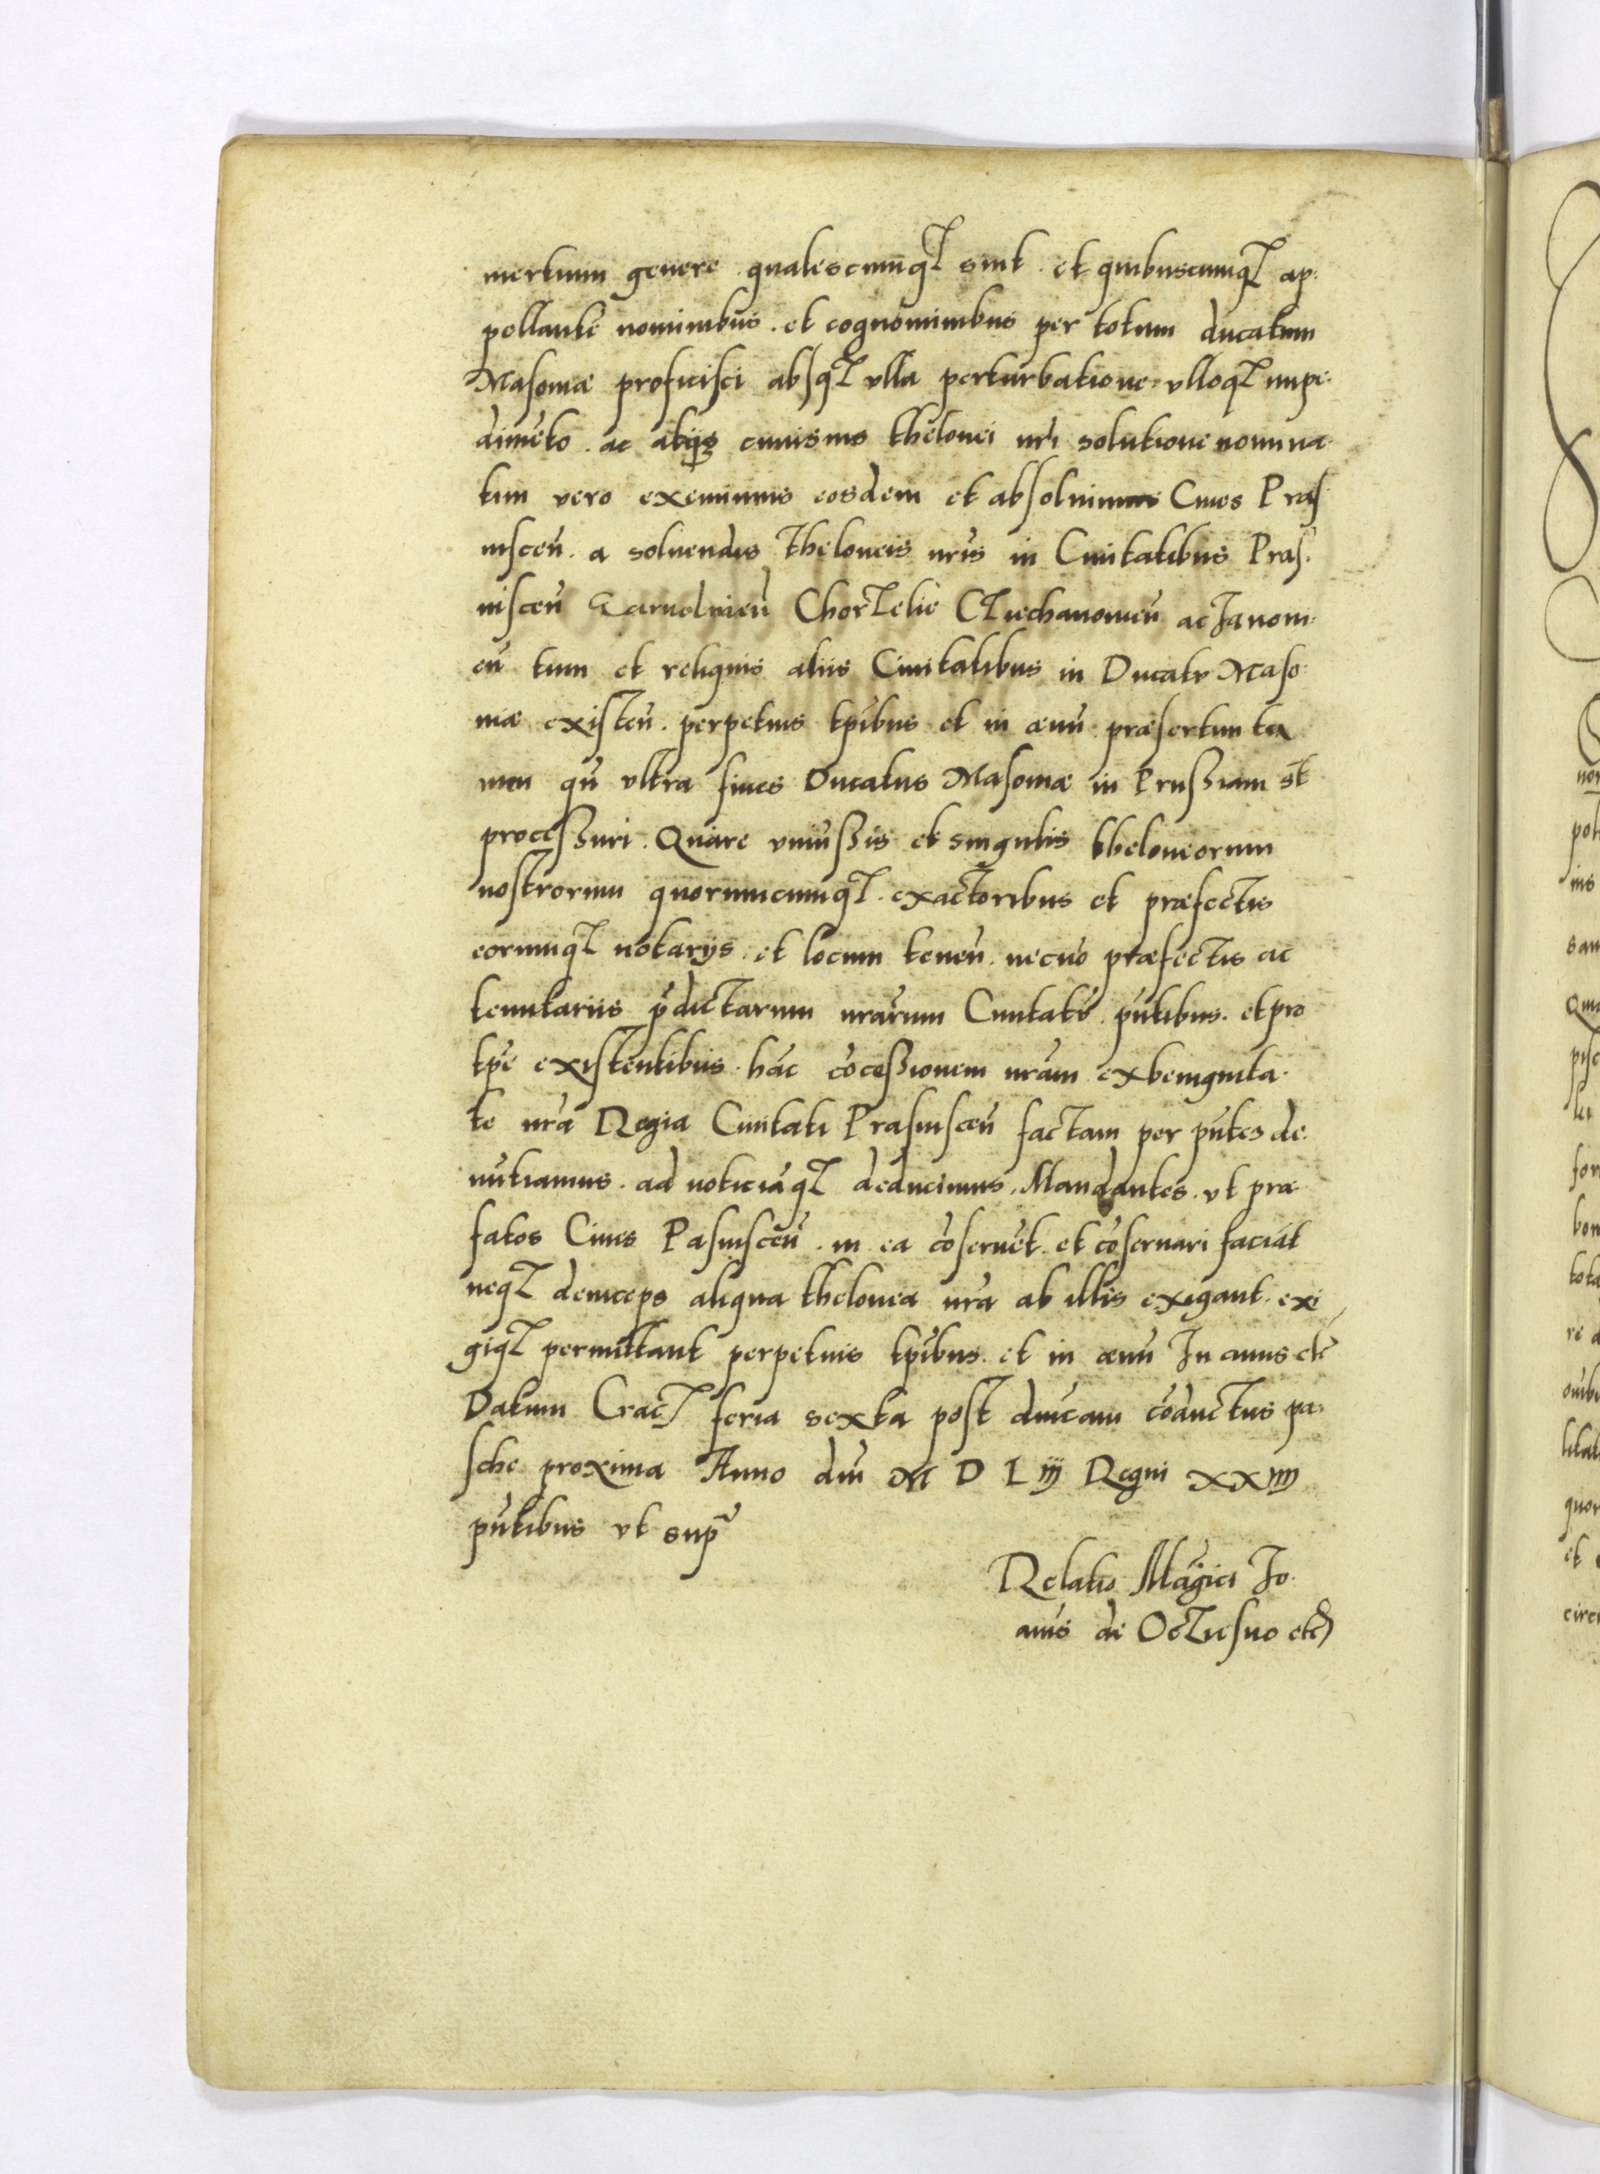 mertium genere qualescunq₃ sint et quibuscumq₃ ap-
pellant̃ nominibus. et cognominibus per totum ducatum
Masoviæ proficisci absq₃ ulla perturbatione, ulloq₃ impe-
dimẽto. ac cuiusvis thelonei nr̃i solutione nomina-
tim vero eximimus eosdem et absolvimus Cives Pras-
niscen̄. a solvendis theloneis nr̃is in Civitatibus Pras-
niscen̄ Chor₃elie C₃iechanovien̄ ac Janovi-
en̄ tum et reliquis aliis Civitatibus in Ducatu Maso-
viæ existen̄. perpetuis tp̃ibus et in ævũ præsertim ta
men qũ ultra fines Ducatus Masoviæ in Prussiam st̃
processuri. Quare universis et singulis theloneorum
nostrorum quorumcumq₃. exactoribus et præfectis
eorumq₃ notarijs. et locum tenen̄. necnõ præfectis ac
tenutariis p̃dictarum nr̃arum Civitatũ. pñtibus. et pro
tp̃e existentibus. hãc cõcessionem nr̃am ex benignita-
te nr̃a Regia Civitati Prasniscen̄ factam per pñtes de-
nũtiamus. ad noticiãq₃ deducimus. Mandantes. ut præ-
fatos Cives Pasniscen̄. in ea cõservẽt. et cõservari faciãt
neq₃ deinceps aliqua thelonea nr̃a ab illis exigant. exi
giq₃ permittant perpetuis tp̃ibus. et in ævũ In cuius etc̃
Datum Crac₃ feria sexta post dñicam cõductus pa-
sche proxima Anno dñi M D L iiij Regni xxiiij
pñtibus ut sup̃
Relatio Mag̃ci Jo-
anis de Oc₃iesno etc̃